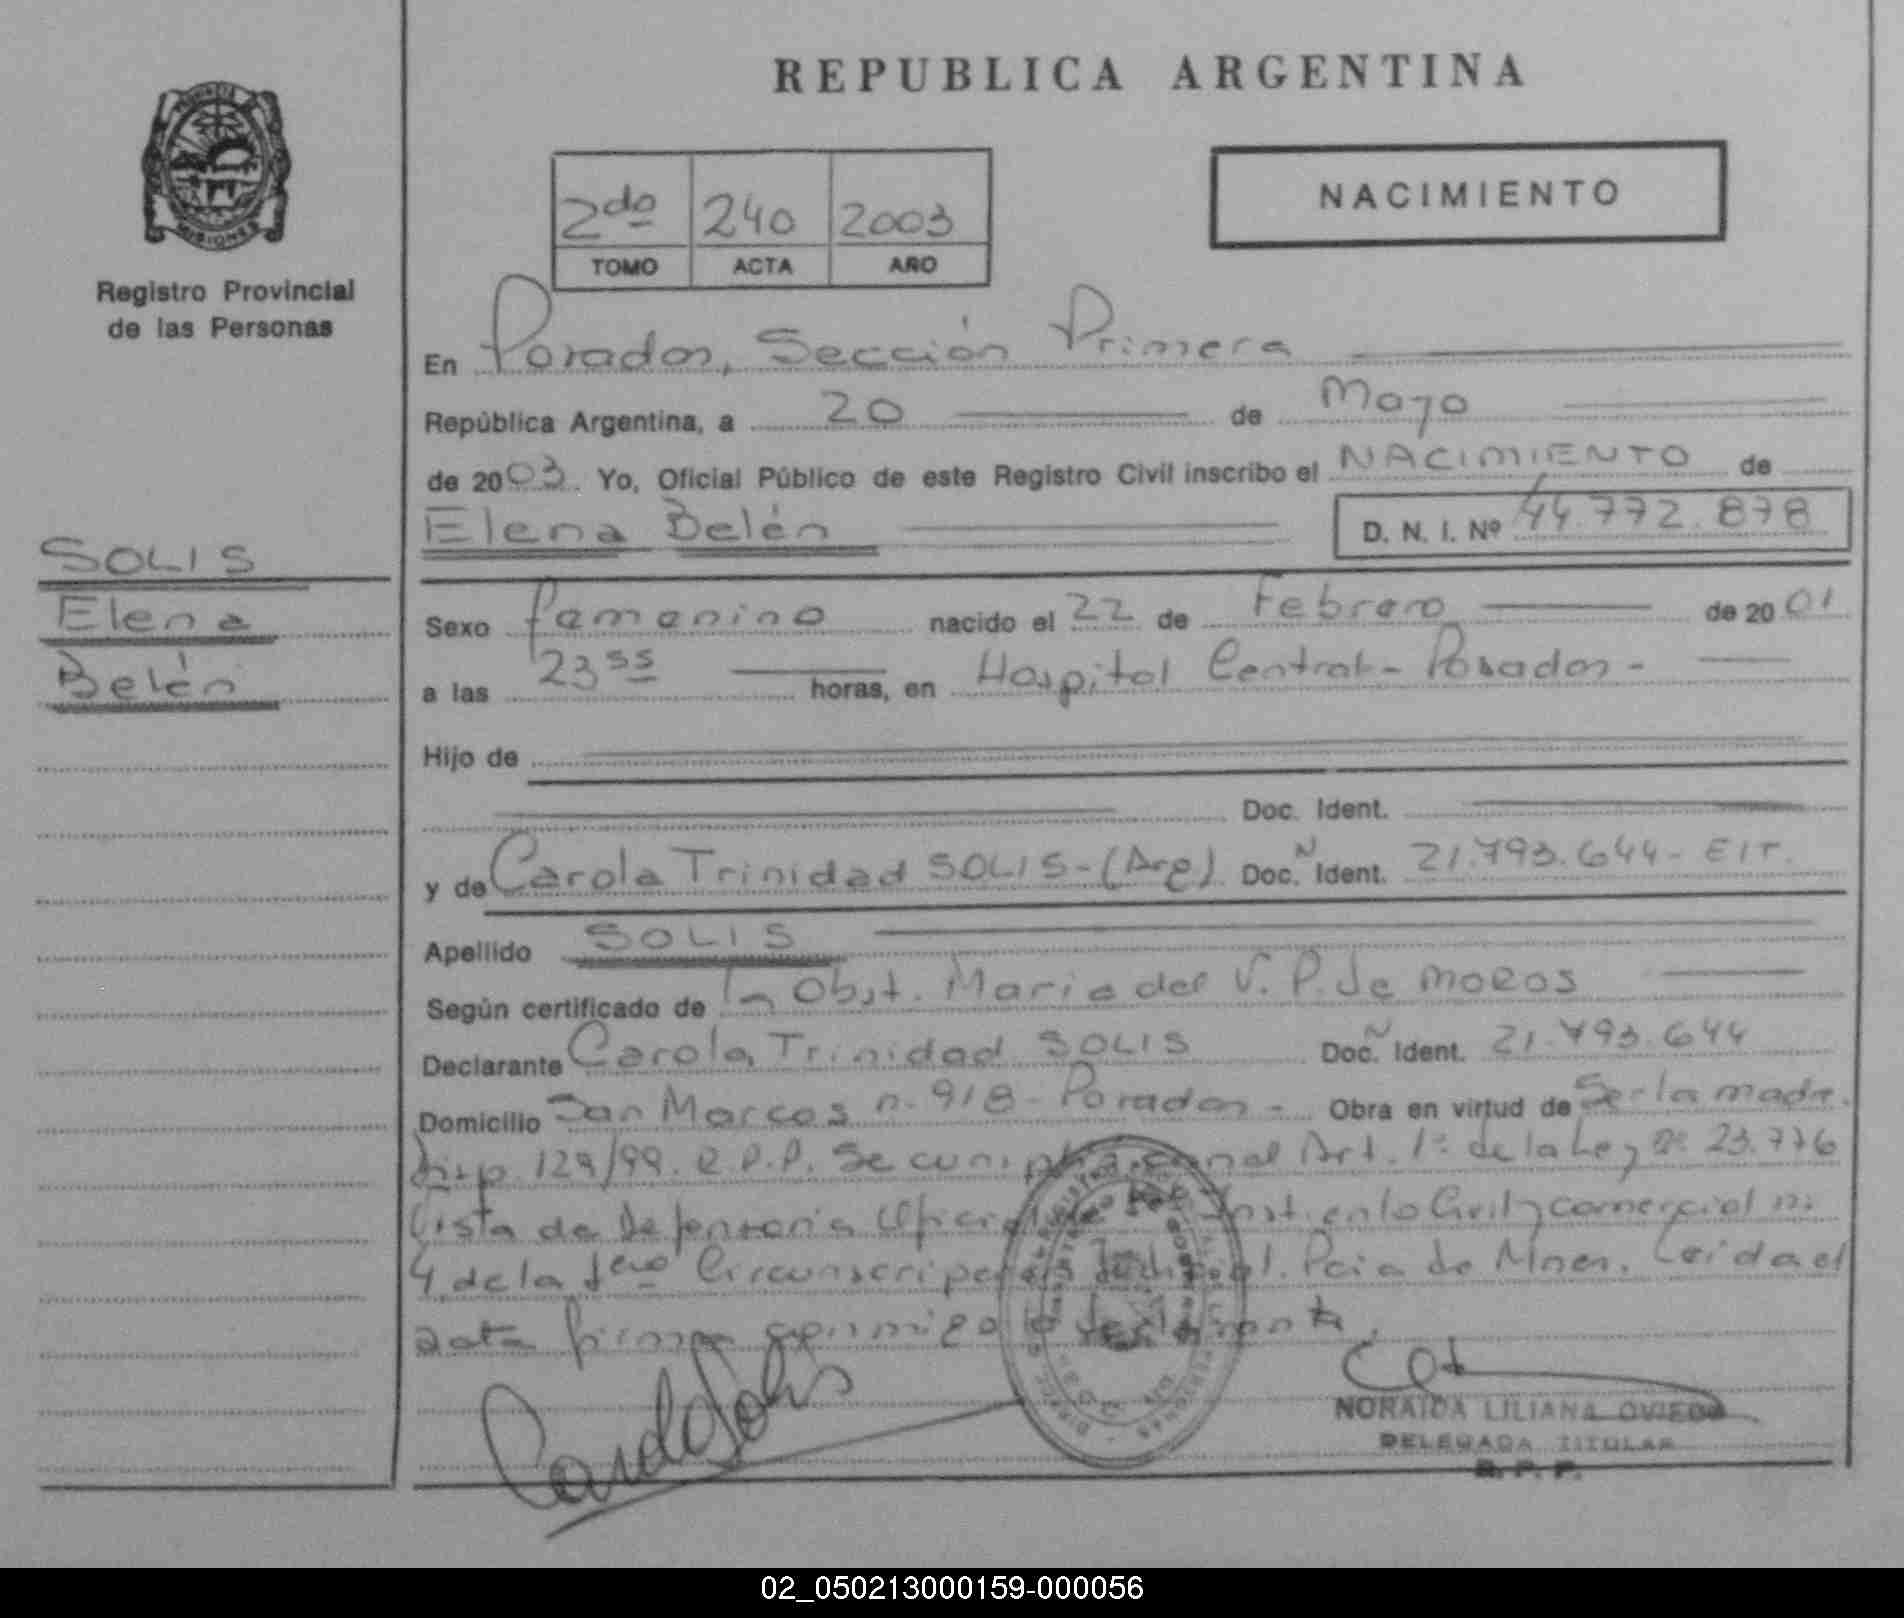 REPUBLICA ARGENTINA
PROVINCIA
MISIONES
Registro Provincial
de las Personas
2do 240 2003
TOMO ACTA AÑO
NACIMIENTO
En Posadas, Sección Primera
República Argentina, a 20 de Mayo
de 2003. Yo, Oficial Público de este Registro Civil inscribo el NACIMIENTO de
Elena Belén D. N. I. Nº 44.772.878
SOLIS
Elena
Belén
Sexo femenino nacido el 22 de Febrero de 2001
a las 23 55 horas, en Hospital Central - Posadas -
Hijo de
Doc. Ident.
y de Carola Trinidad SOLIS - (Arg) Doc. N Ident. 21.793.644 -
Apellido SOLIS
Según certificado de la Obst. Maria del V. P. de MOROS
Declarante Carola Trinidad SOLIS Doc. N Ident. 21.793.644
Domicilio San Marcos n. 918 - Posadas - Obra en virtud de Ser la madre.
Disp. 129/99. R.P.P. Se cumplió con el Art. 1º de la Ley nº 23.776
Vista de Defensoria Oficial de Inst. en lo Civil y comercial nº
4 de la 1era Circunscripción Judicial. Pcia de Mnes. Leida el
acta firma conmigo la declarante.
Carola Solis
NORAIDA LILIANA OVIEDO
DELEGADA TITULAR
R. P. P.
02_050213000159-000056